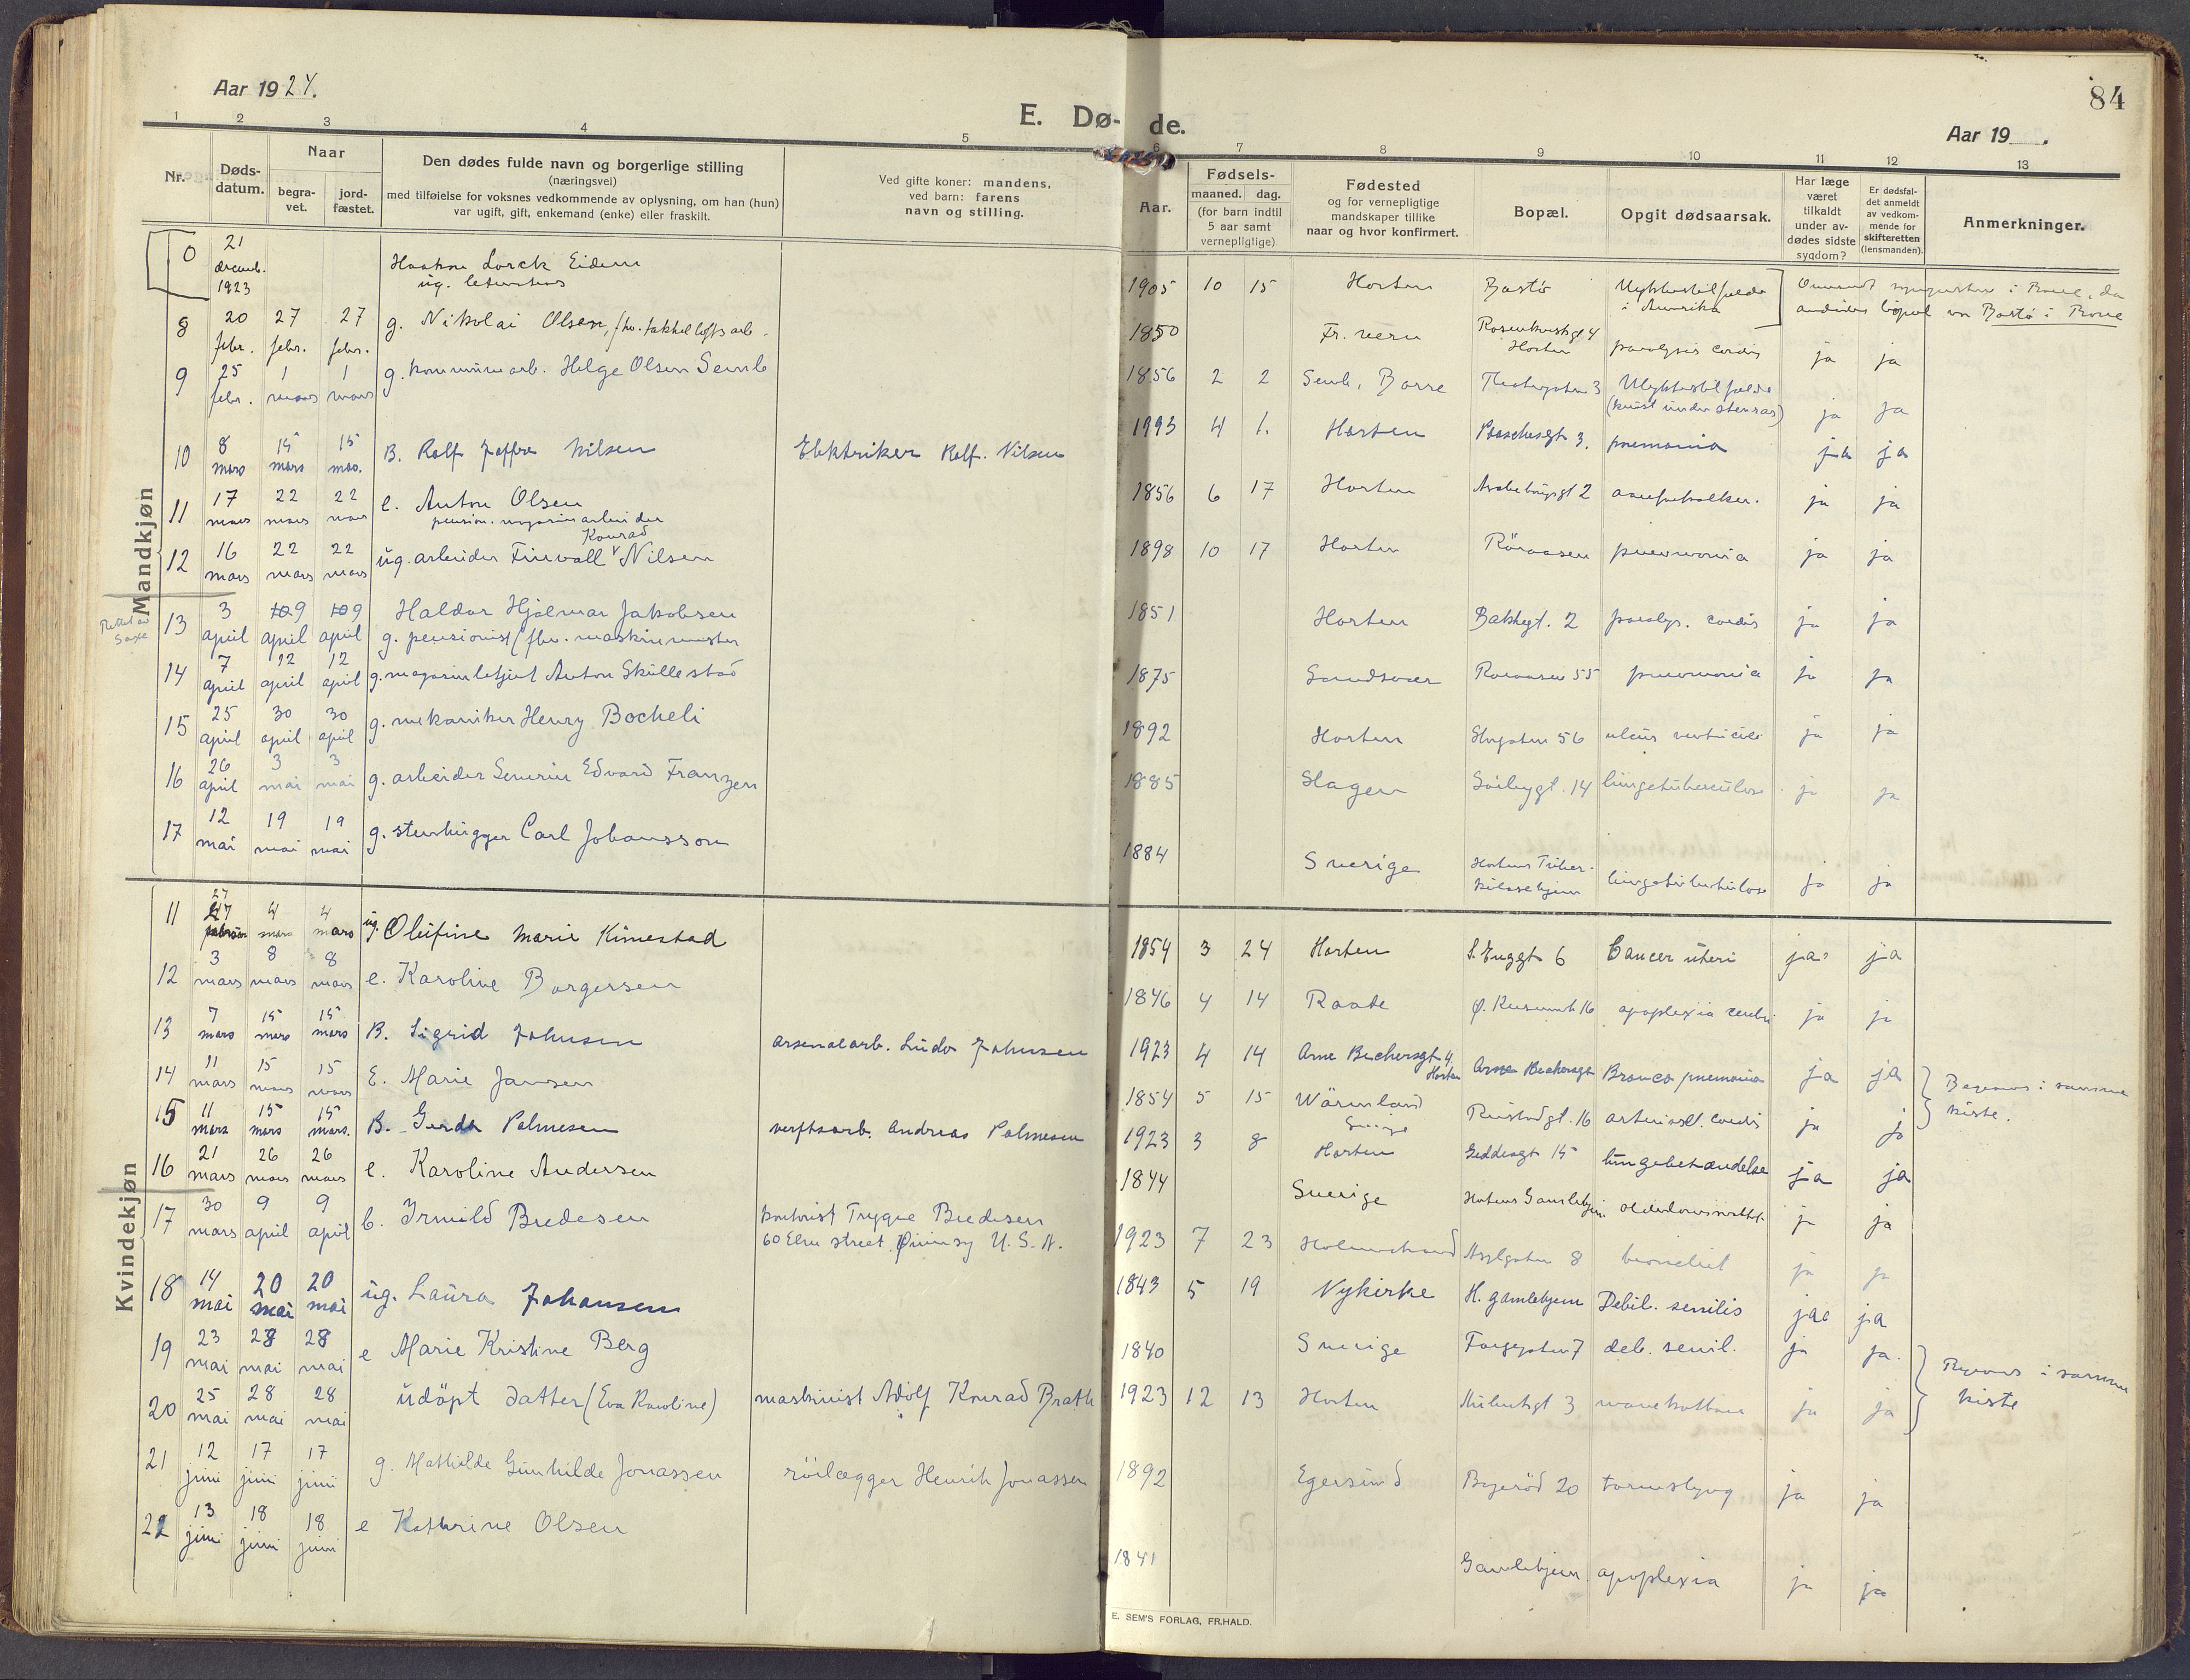 Aar 1924.
E. Dø-de.
84
Aar 19 .
1 2 3 4 5 6 7 8 9 10 11 12 13
Nr.
Døds-
datum.
Naar
begra-
vet.
jord-
fæstet.
Den dødes fulde navn og borgerlige stilling
(næringsvei)
med tilføielse for voksnes vedkommende av oplysning, om han (hun)
var ugift, gift, enkemand (enke) eller fraskilt.
Ved gifte koner: mandens,
ved barn: farens
navn og stilling.
Aar.
Fødsels-
maaned. dag.
(for barn indtil
5 aar samt
vernepligtige)
Fødested
og for vernepligtige
mandskaper tillike
naar og hvor konfirmert.
Bopæl.
Opgit dødsaarsak.
Har læge
været
tilkaldt
under av-
dødes sidste
sygdom?
Er dødsfal-
det anmeldt
av vedkom-
mende for
skifteretten
(lensmanden).
Anmerkninger.
Mandkjøn
0 21 decemb. 1923 Eidem ug. 1905 10 15 Horten Bastø Ulykkestilfælde i Amerika i Borre, da bopæl var Bastø i Borre
8 20 febr. 27 febr. 27 febr. g. Nikolai Olsen, 1850 Horten paralysis cordis ja ja
9 25 febr. 1 mars 1 mars g. kommunearb. Helge Olsen Semb 1856 2 2 Semb, Borre 3 Ulykkestilfælde (knust under stenras) ja ja
10 8 mars 15 mars 15 mars B. Rolf Joffre Nilsen Elektriker Rolf Nilsen 1993 4 1. Horten 3. pnemonia ja ja
11 17 mars 22 mars 22 mars e. Anton Olsen pension. arbeider 1856 6 17 Horten 2 ja ja
12 16 mars 22 mars 22 mars ug. arbeider Finvall Konrad Nilsen 1898 10 17 Horten Røraasen pneumonia ja ja
13 3 april 10 9 april 10 9 april Haldor Hjalmar Jakobsen g. pensionist (fhv. maskinmester 1851 Horten Bakkegt. 2 paralys. cordis ja ja
14 7 april 12 april 12 april g. magasinbetjent Anton Skullestad 1875 Sandsvær 55 pneumonia ja ja
15 25 april 30 april 30 april g. mekaniker Henry Bocheli 1892 Horten Storgaten 56 ulcus ventriculi ja ja
16 26 april 3 mai 3 mai g. arbeider Severin Edvard Franzen 1885 Slagen 14 lungetuberculose ja ja
17 12 mai 19 mai 19 mai g. stenhugger Carl Johansson 1884 Sverige Hortens Tuber-kulosehjem lungetuberkulose ja ja
Kvindekjøn
11 27 februar 4 mars 4 mars ug. Olefine Marie Kimestad 1854 3 24 Horten 6 Cancer uteri ja ja
12 3 mars 8 mars 8 mars e. Karoline Borgersen 1846 4 14 Raade 16 apoplexia cerebri ja ja
13 7 mars 15 mars 15 mars B. Sigrid Johnsen arsenalarb. Ludv Johnsen 1923 4 14 Arne Bechersgt 4, Horten Arne Bechersgt Bronco pnemonia ja ja Begraves i samme kiste.
14 11 mars 15 mars 15 mars E. Marie Jansen 1854 5 15 Wärmland Sverige Rustadgt. 16 cordis ja ja
15 11 mars 15 mars 15 mars. B. Gerda Palmesen verftsarb. Andreas Palmesen 1923 3 8 Horten Geddesgt 15 lungebetændelse ja ja
16 21 mars 26 mars 26 mars e. Karoline Andersen 1844 Sverige Hortens Gamlehjem ja ja
17 30 mars 9 april 9 april b. Irmild Bredesen kontorist Trygve Bredesen 60 Elm street, Quincy U.S.A. 1923 7 23 Holmestrand Asylgaten 8 ja ja
18 14 mai 20 mai 20 mai ug. Laura Johansen 1843 5 19 Nykirke H. gamlehjem Debil. senilis ja ja
19 23 mai 28 mai 28 mai e Marie Kristine Berg 1840 Sverige Langgaten 7 deb. senil. ja ja. Begraves i samme kiste
20 25 mai 28 mai 28 mai udöpt datter (Eva Karoline) maskinist Adolf Konrad Brath 1923 12 13 Horten 3 ja ja
21 12 juni 17 juni 17 juni g. Mathilde Gunhilde Jonassen rörlægger Henrik Jonassen 1892 Egersund 20 tarmslyng ja ja
22 13 juni 18 juni 18 juni e Kathrine Olsen 1841 Gamlehjem. apoplexia ja ja
E. SEM'S FORLAG, FR.HALD.